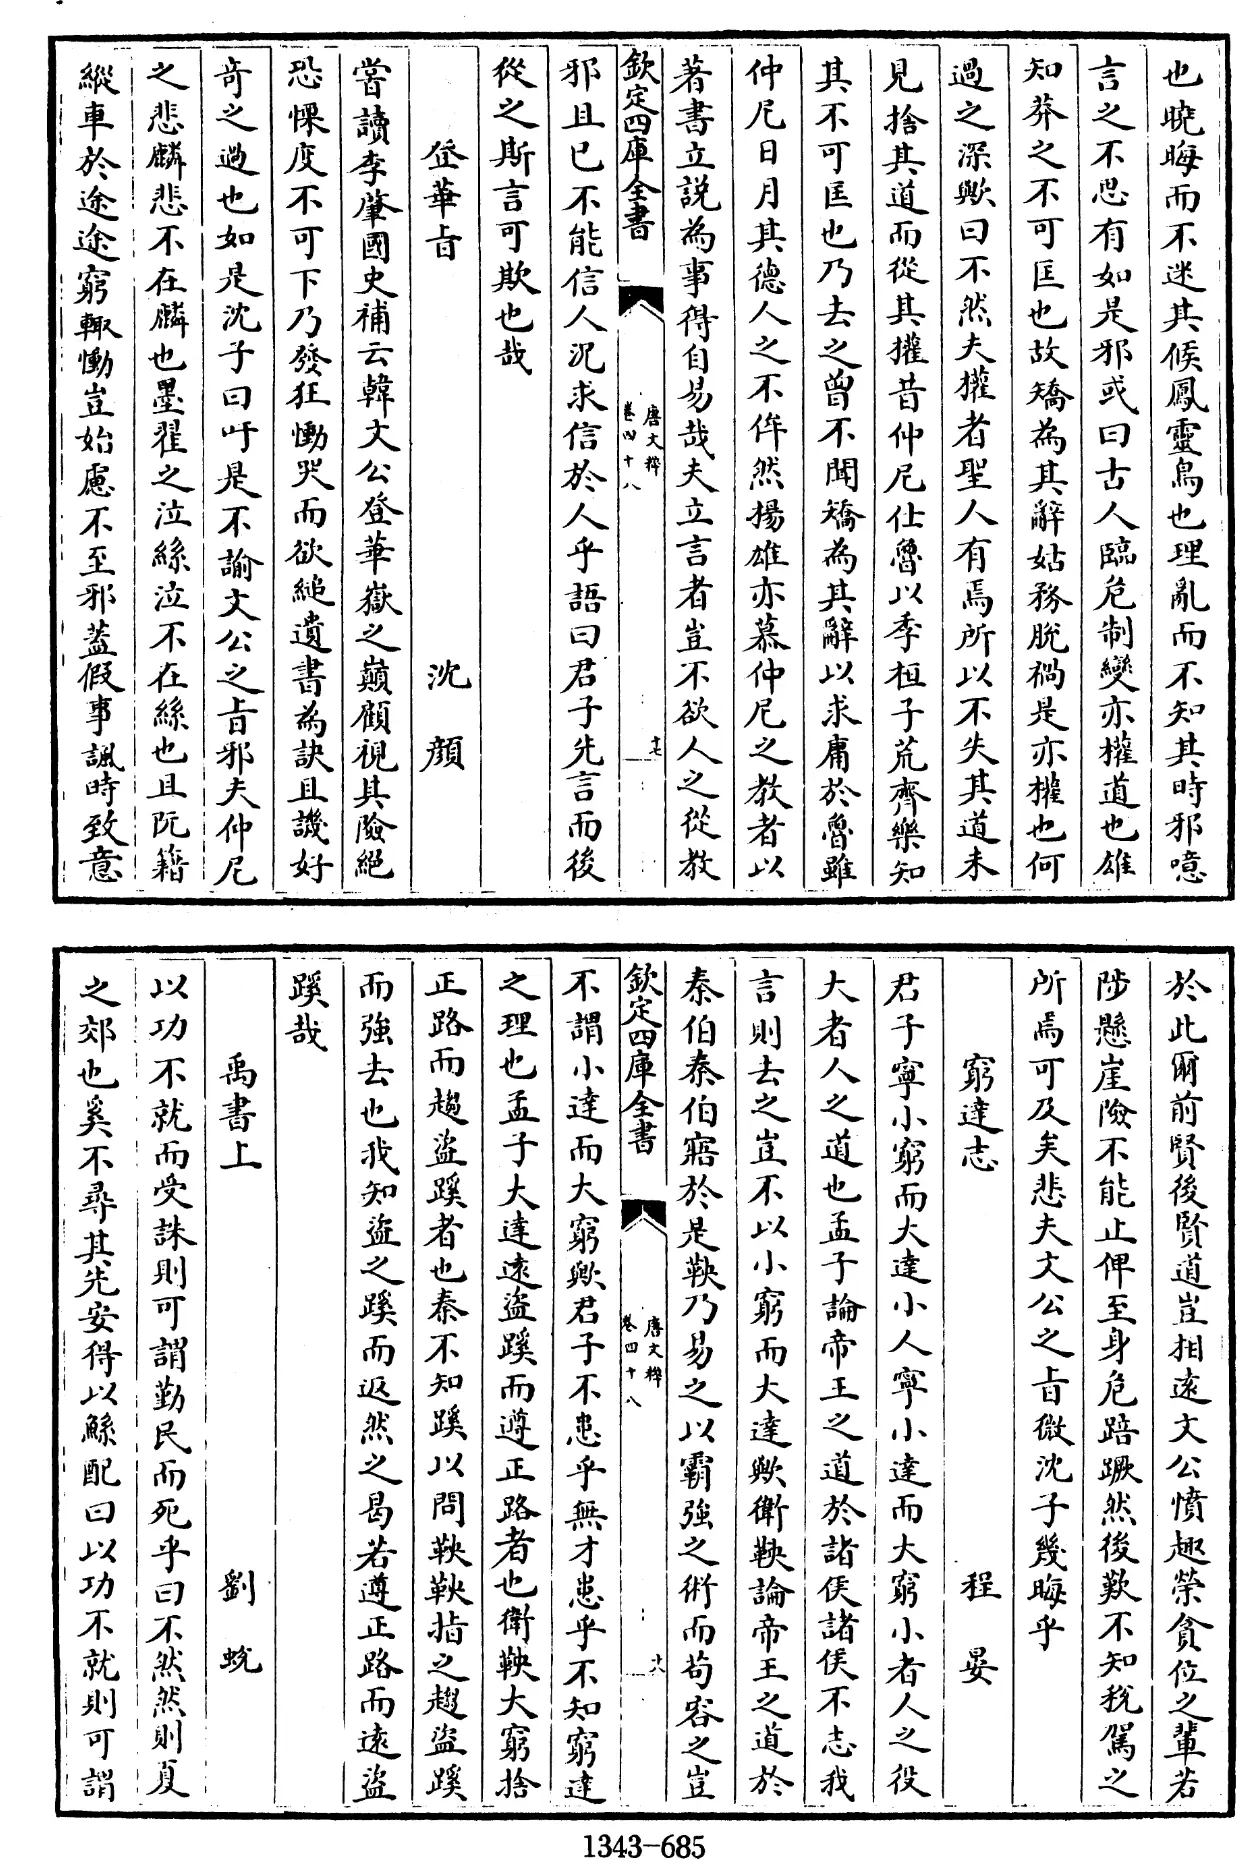 也曉晦而不迷其候鳳靈鳥也理亂而不知其時邪噫
言之不思有如是邪或曰古人臨危制變亦權道也雄
知莽之不可匡也故矯為其辭姑務脫禍是亦權也何
過之深歟曰不然夫權者聖人有焉所以不失其道未
見捨其道而從其權昔仲尼仕魯以季桓子荒齊樂知
其不可匡也乃去之曾不聞矯為其辭以求庸於魯雖
仲尼日月其德人之不侔然揚雄亦慕仲尼之教者以
著書立説為事得自易哉夫立言者豈不欲人之從教
欽定四庫全書
唐文粹
卷四十八
十七
邪且已不能信人况求信於人乎語曰君子先言而後
從之斯言可欺也哉
登華旨
沈顔
嘗讀李肇國史補云韓文公登華嶽之巔顧視其險絕
恐慄度不可下乃發狂慟哭而欲縋遺書為訣且譏好
奇之過也如是沈子曰吁是不諭文公之旨邪夫仲尼
之悲麟悲不在麟也墨翟之泣絲泣不在絲也且阮籍
縱車於途途窮輒慟豈始慮不至邪蓋假事諷時致意
於此爾前賢後賢道豈相遠文公憤趣榮貪位之輩若
陟懸崖險不能止俾至身危踣蹶然後歎不知稅駕之
所焉可及矣悲夫文公之旨微沈子幾晦乎
窮達志
程晏
君子寧小窮而大達小人寧小達而大窮小者人之役
大者人之道也孟子論帝王之道於諸侯諸侯不志我
言則去之豈不以小窮而大達歟衛鞅論帝王之道於
秦伯秦伯寤於是鞅乃易之以霸強之術而苟容之豈
欽定四庫全書
唐文粹
卷四十八
十八
不謂小達而大窮歟君子不患乎無才患乎不知窮達
之理也孟子大達遠盜蹊而遵正路者也衛鞅大窮捨
正路而趨盜蹊者也秦不知蹊以問鞅鞅指之趨盜蹊
而強去也我知盜之蹊而返然之曷若遵正路而遠盜
蹊哉
禹書上
劉蛻
以功不就而受誅則可謂勤民而死乎曰不然然則夏
之郊也奚不尋其先安得以鯀配曰以功不就則可謂
1343-685